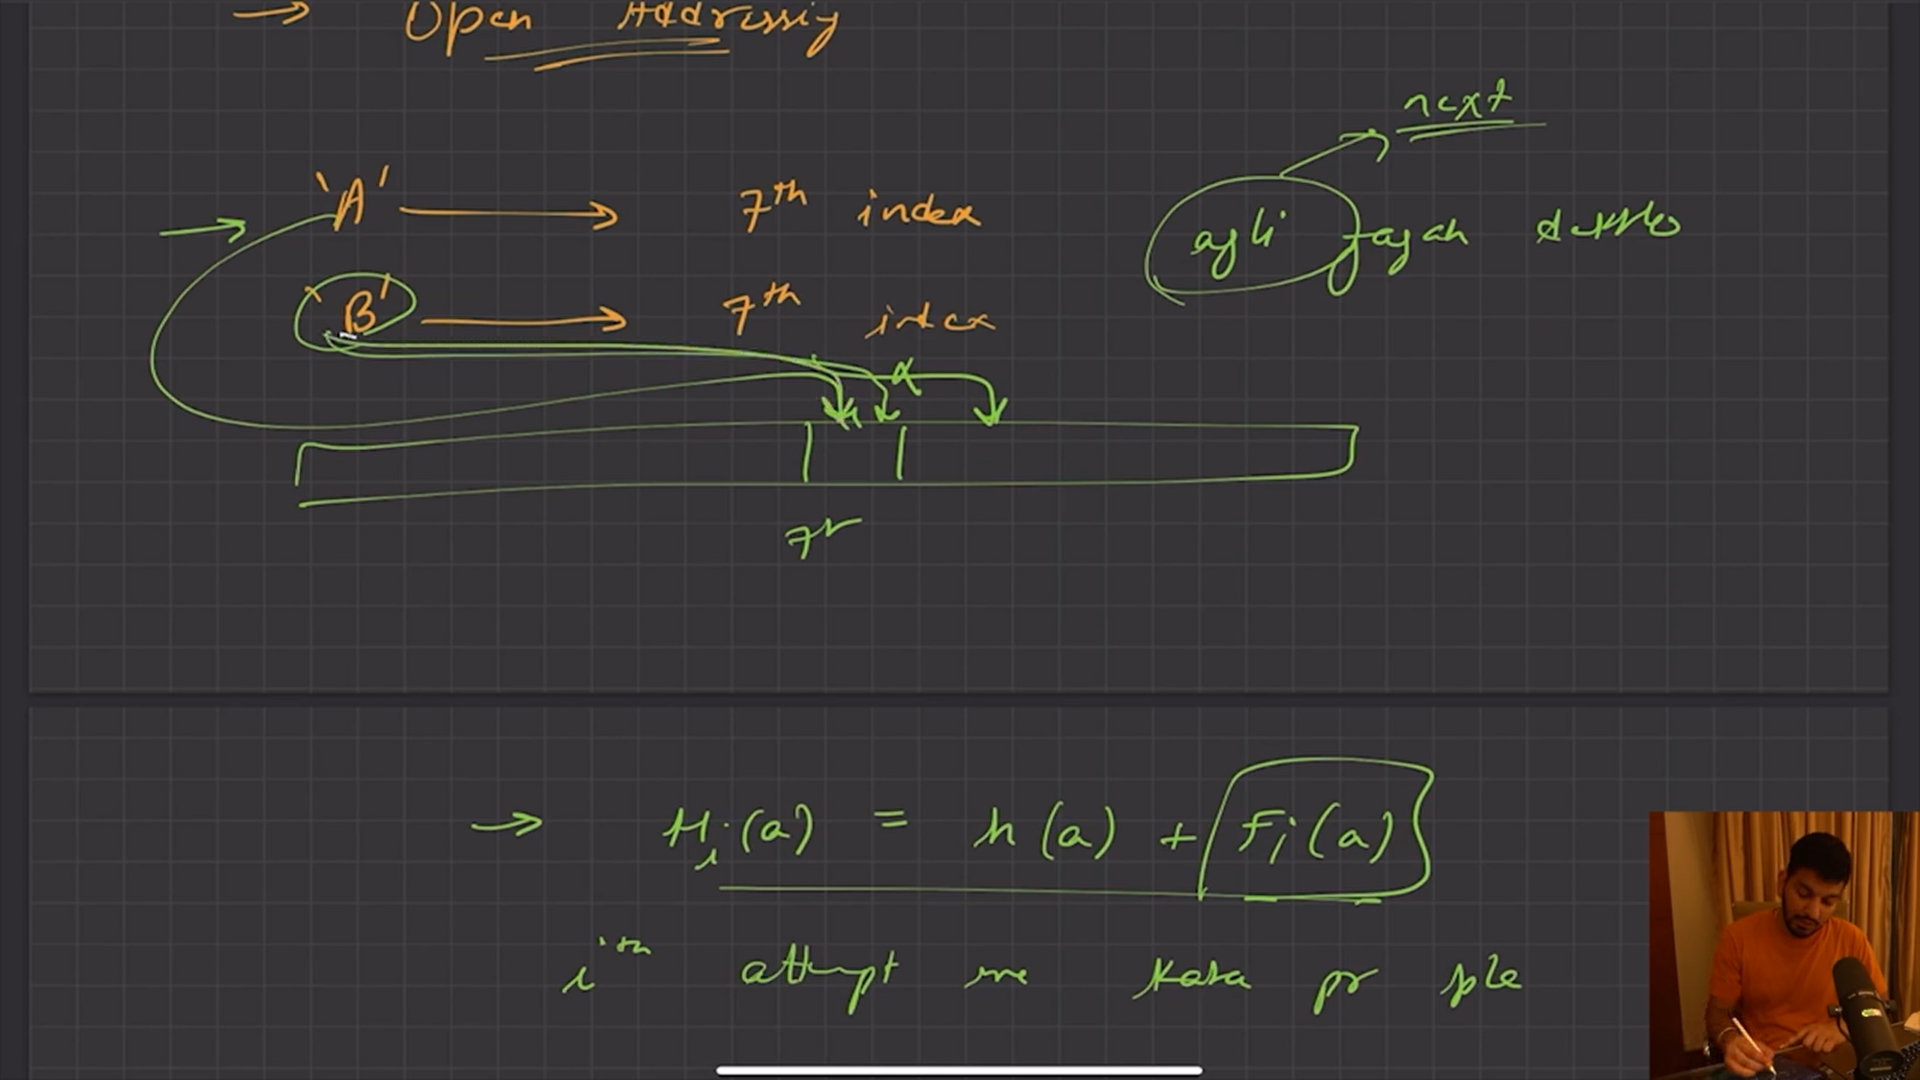 → Open Addressig
next
'A' → 7th index
agli jagah dekho
'B' → 7th index
7
→ Hi(a) = h(a) + Fi(a)
ith attempt me kaha pr